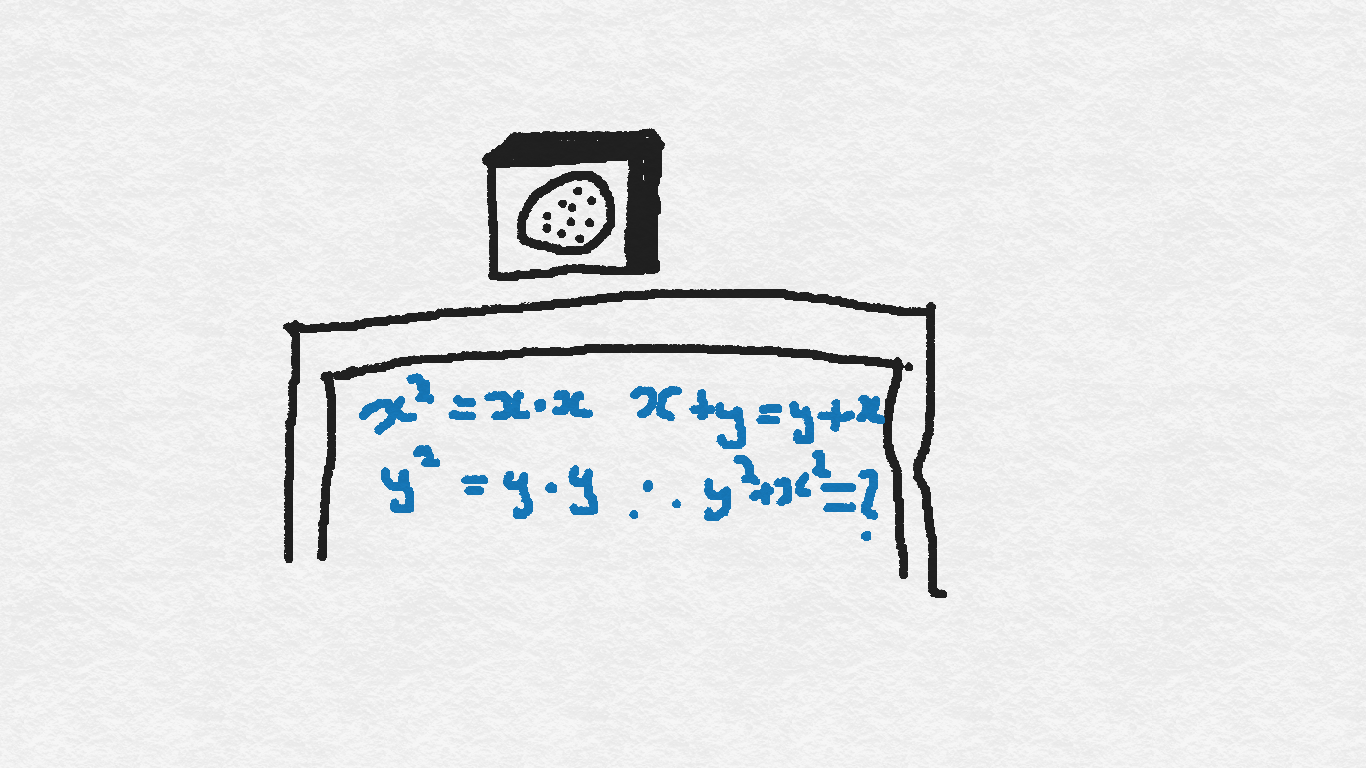 x² = x·x x+y=y+x
y² = y·y ∴ y²+x²=?